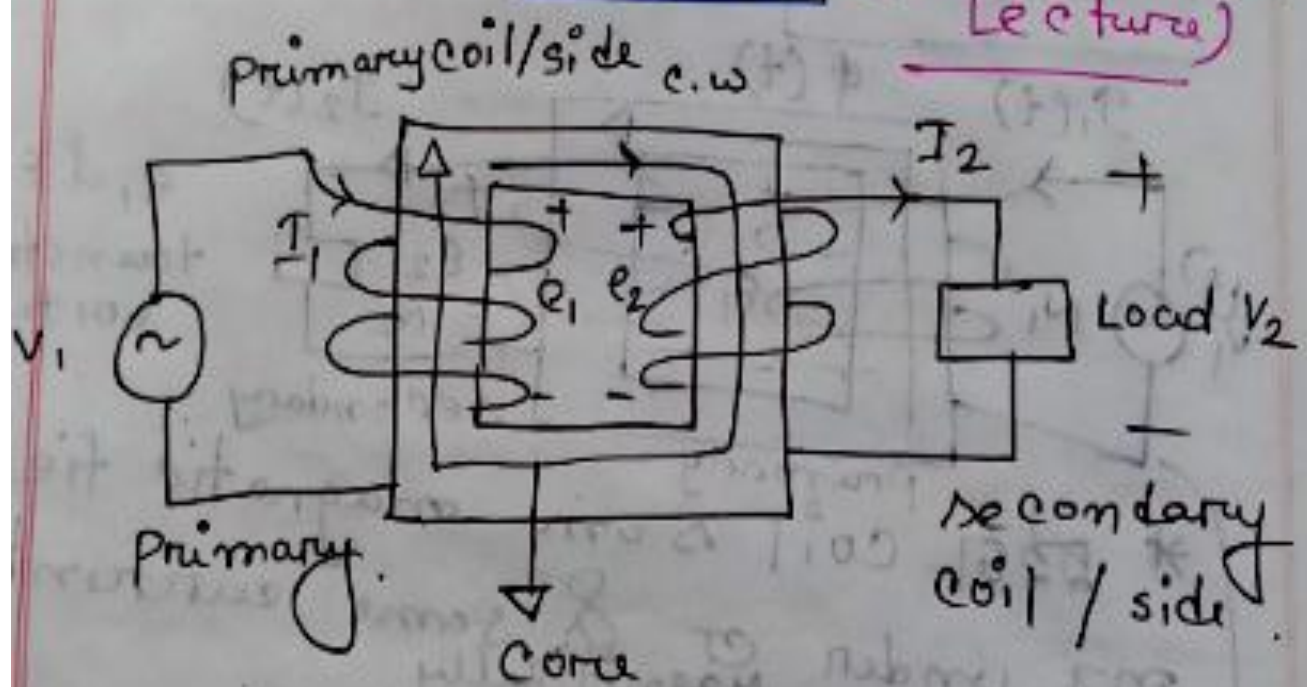 Lecture)
primary coil/side c.w
I2
+
I1
+
+
e1
e2
V1
~
Load V2
-
-
-
primary.
secondary
coil / side.
Core